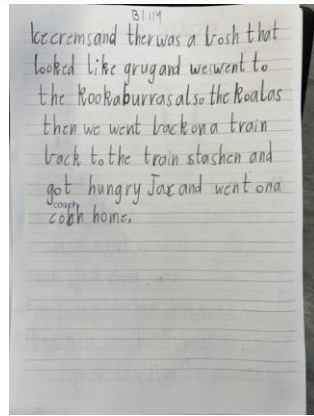 B1114
Icecremsand therwas a bosh that
looked like grugand weswent to
the Kookaburrasalso the Koalas
then we went backona train
back to the train stashen and
got hungry Jaxand went ona
coach
cobh home.